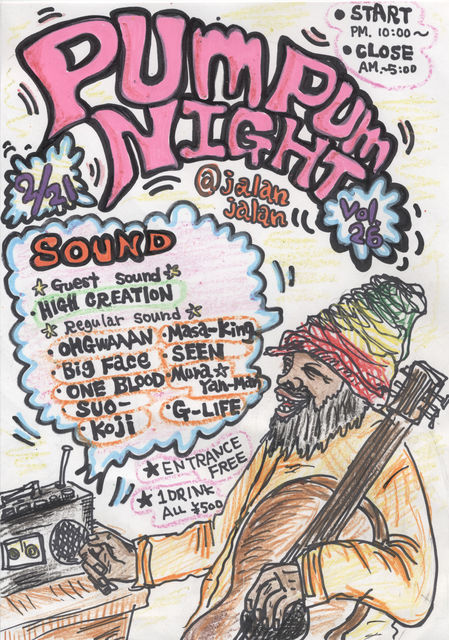 • START
PM. 10:00~
• CLOSE
AM.~5:00
PUM PUM
NIGHT
@jalan
jalan
2/21
Vol
26
SOUND
☆Guest Sound☆
・HIGH CREATION
☆Regular Sound☆
・OHGWAAAN
Big Face
ONE BLOOD
SUO-
KOJI
Masa-King
・SEEN
Mura☆
Yan-Man
・G-LIFE
★ENTRANCE
FREE
★1DRINK
ALL ¥500